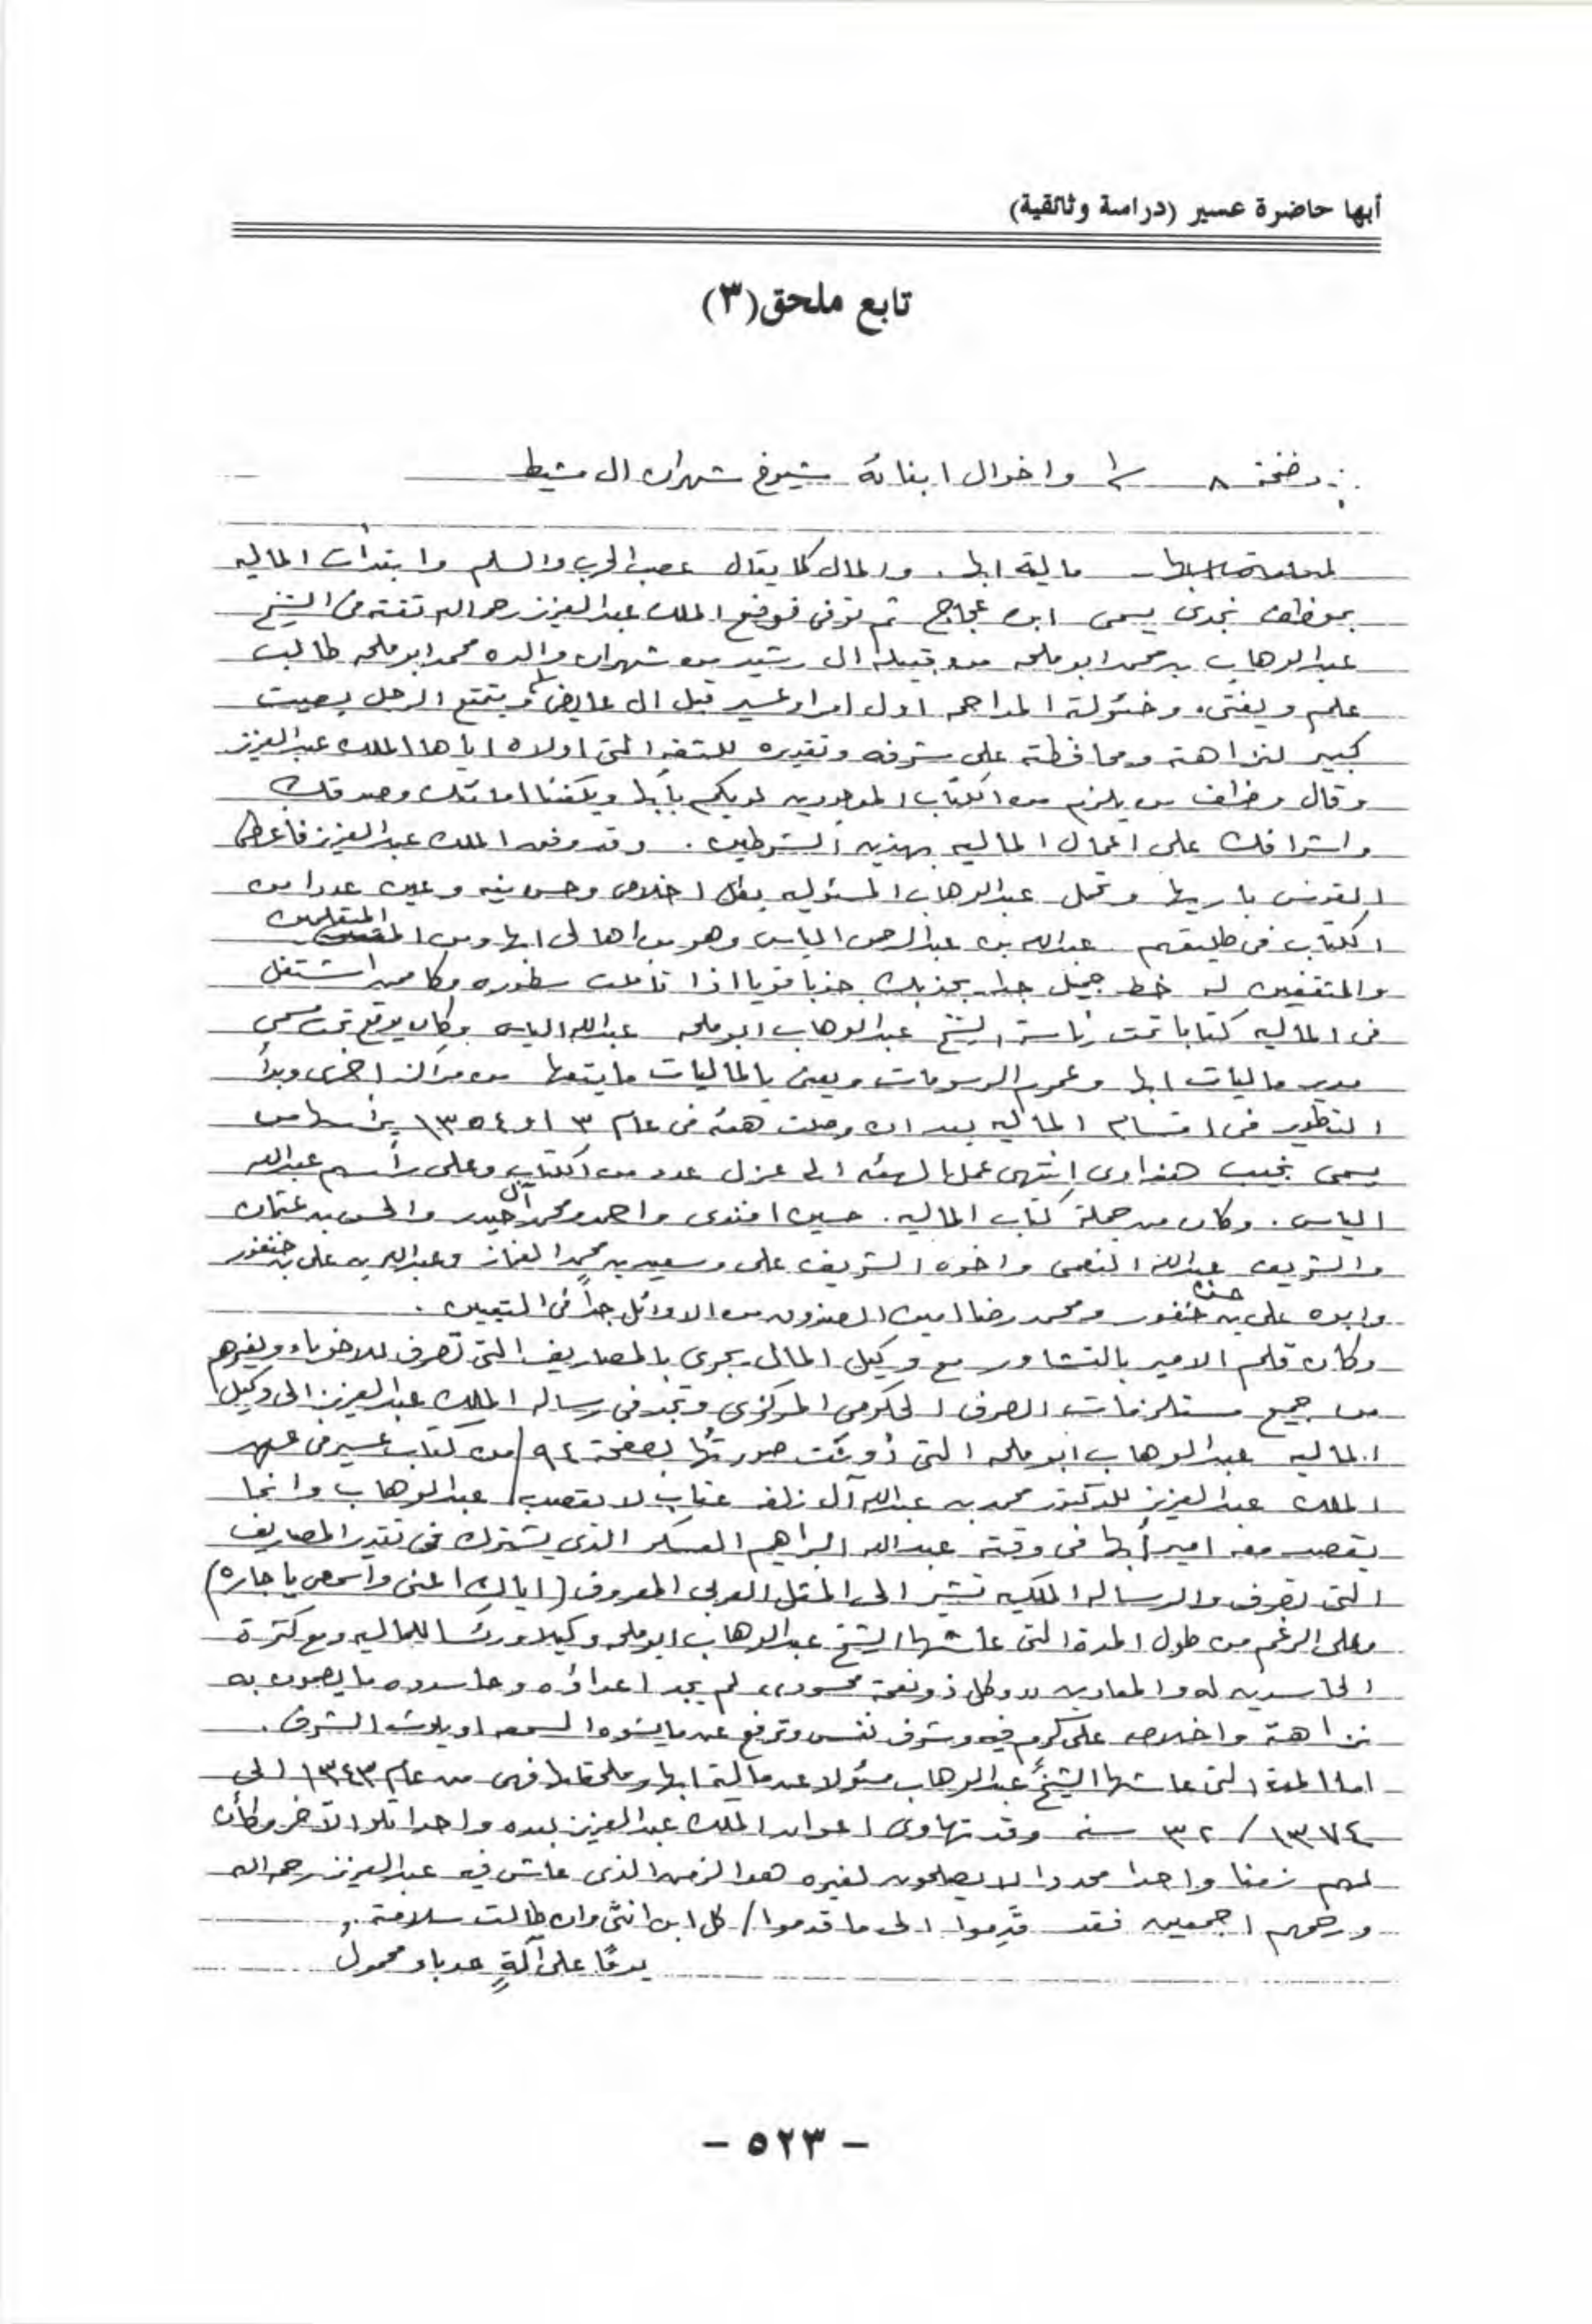 أبها حاضرة عسير (دراسة وثائقية)
تابع ملحق (٣)
صفحة ٨ واخوال ابنائه شيوخ شهران ال مشيط
مالية ابها . والمال كما يقال عصب الحرب والسلم وابتدأت الماليه
بموظف نجدى يسمى ابن عجاج ثم توفى فوضع الملك عبدالعزيز رحمه الله ثقته فى الشيخ
عبدالوهاب بن محمد ابو ملحه من قبيلة ال رشيد من شهران والده محمد ابو ملحه طالب
علم ويفتى، وخئولة المداحمه اول امراء عسير قبل ال عايض ويتمتع الرجل بصيت
كبير لنزاهته ومحافظته على شرفه وتقديره للثقه التى اولاه اياها الملك عبدالعزيز
وقال وظف من يلزم من الكتاب الموجودين لديكم بأبها ويكفينا امانتك وصدقك
واشرافك على اعمال الماليه بهذين الشرطين . وقد وفد الملك عبدالعزيز فأعطى
القوس باريها وتحمل عبدالوهاب المسئوليه بكل اخلاص وحسن نيه وعين عددا من
الكتاب فى طليعتهم عبدالله بن عبدالرحمن الياس وهو من اهالى ابها ومن المتعلمين
والمثقفين له خط جميل جدا يجذبك جذبا قويا اذا تأملت سطوره وكا ممن اشتغل
فى الماليه كتابا تحت رئاسة الشيخ عبدالوهاب ابو ملحه عبدالله الياس وكان يوقع تحت مسمى
مدير ماليات ابها وعموم الرسومات ويعنى بالماليات ما يتبعها من مراكز اخرى وبدأ
التطور فى اقسام الماليه بعد ان وصلت هيئه فى عام ٣ او ١٣٥٤ يرأسها من
يسمى نجيب هنداوى انتهى عمل الهيئه الى عزل عدد من الكتاب وعلى رأسهم عبدالله
الياس . وكان من جملة كتاب الماليه . حسين افندى واحمد ومحمد آل حيدر والحسن بن عثمان
والشريف عبدالله النعمى واخوه الشريف على وسعيد بن محمد الغماز وعبدالله بن على بن خنفور
وابوه على بن حسن خنفور ومحمد رضا امين الصندوق من الاوائل جداً فى التعيين .
وكان قلم الامير بالتشاور مع وكيل المالى يجرى بالمصاريف التى تصرف للاخوياء وغيرهم
من جميع مستلزمات الصرف الحكومى المركزى وتجد فى رساله الملك عبدالعزيز الى وكيل
الماليه عبدالوهاب ابو ملحه التى دُوِّنت صورتها بصفحة ٩٤ من كتاب عسير فى عهد
الملك عبدالعزيز للدكتور محمد بن عبدالله آل زلفه عتاب لا يقصد عبدالوهاب وانما
يقصد معه امير أبها فى وقته عبدالله ابراهيم العسكر الذى يشترك فى تقدير المصاريف
التى تصرف والرساله الملكيه تشير الى المثل العربى المعروف (اياك اعنى واسمعى يا جاره)
وعلى الرغم من طول المدة التى عاشها الشيخ عبدالوهاب ابو ملحه وكيلا ورئسا للماليه ومع كثرة
الحاسدين له والمعادين "وكل ذو نعمة محسود" لم يجد اعداؤه وحاسدوه ما يصمون به
نزاهته واخلاصه على كرم فيه وشرف نفس وترفع عن ما يشوه السمعه او يلوث الشرف .
اما المدة التى عاشها الشيخ عبدالوهاب مسئولا عن مالية ابها وملحقاتها فهى من عام ١٣٤٣ الى
١٣٧٤ / ٣٢ سنه وقد تهاوى اعوان الملك عبدالعزيز بعده واحدا تلو الآخر وكأن
لهم زمنا واحدا محددا لا يصلحون لغيره هو الزمن الذى عاش فيه عبدالعزيز رحمه الله
ورحمهم اجمعين فقد قدِموا الى ما قدموا / كل ابن انثى وان طالت سلامته
يومًا على آلةٍ حدباء محمول
- ٥٢٣ -